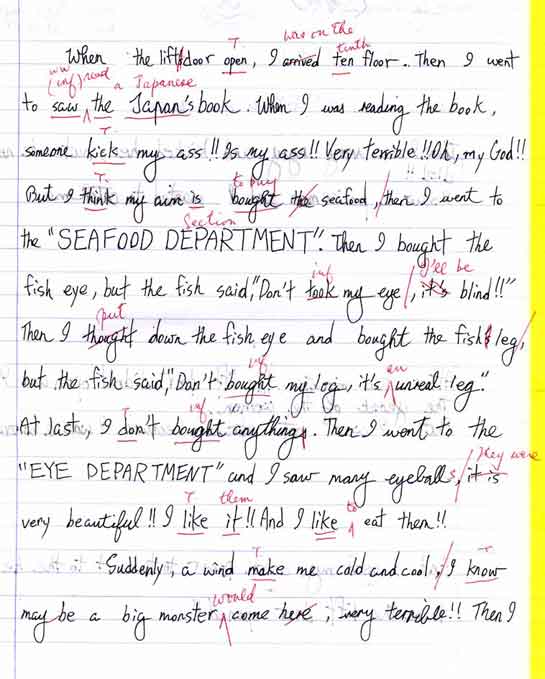 T was on the tenth
When the lift door open, I arrived ten floor.. Then I went
ww (inf) read a Japanese
to saw the Japan's book. When I was reading the book,
T
someone kick my ass!! Is my ass!! Very terrible!! Oh, my God!!
T. to buy
But I think my aim is bought the seafood, then I went to
Section
the "SEAFOOD DEPARTMENT". Then I bought the
inf I'll be
fish eye, but the fish said, "Don't took my eye, it's blind!!"
put
Then I thought down the fish eye and bought the fish's leg,
inf an
but the fish said, "Don't bought my leg, it's unreal leg."
T inf
At last, I don't bought anythings. Then I went to the
they were
"EYE DEPARTMENT" and I saw many eyeballs, it is
T them to
very beautiful!! I like it!! And I like eat them!!
T T
Suddenly, a wind make me cold and cool, I know
would
may be a big monster come here, very terrible!! Then I